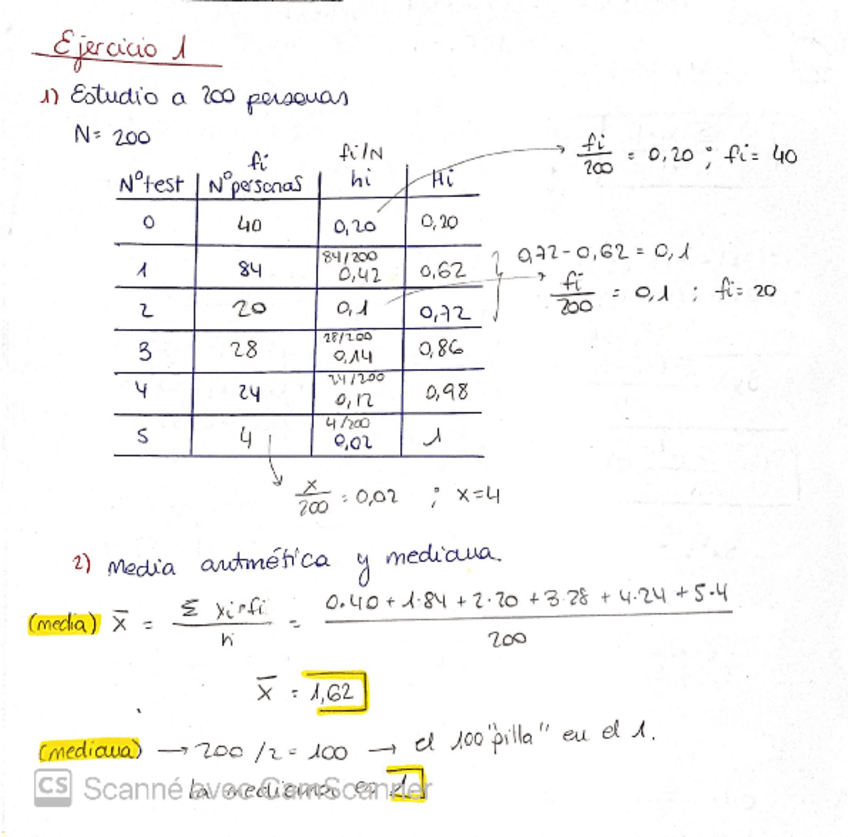 Ejercicio 1
1) Estudio a 200 personas
N= 200
fi fi/N
Nºtest Nºpersonas hi Hi
fi/200 = 0,20 ; fi= 40
0 40 0,20 0,20
84/200
1 84 0,42 0,62
0,72-0,62 = 0,1
2 20 0,1 0,72
fi/200 = 0,1 ; fi= 20
28/200
3 28 0,14 0,86
24/200
4 24 0,12 0,98
4/200
5 4 0,02 1
x/200 = 0,02 ; x=4
2) Media aritmética y mediana.
(media) x̄ = Σ xi·fi / n = 0·40 + 1·84 + 2·20 + 3·28 + 4·24 + 5·4 / 200
x̄ = 1,62
(mediana) → 200 /2 = 100 → el 100 "pilla" en el 1.
La mediana es 1
CS Scanné avec CamScanner